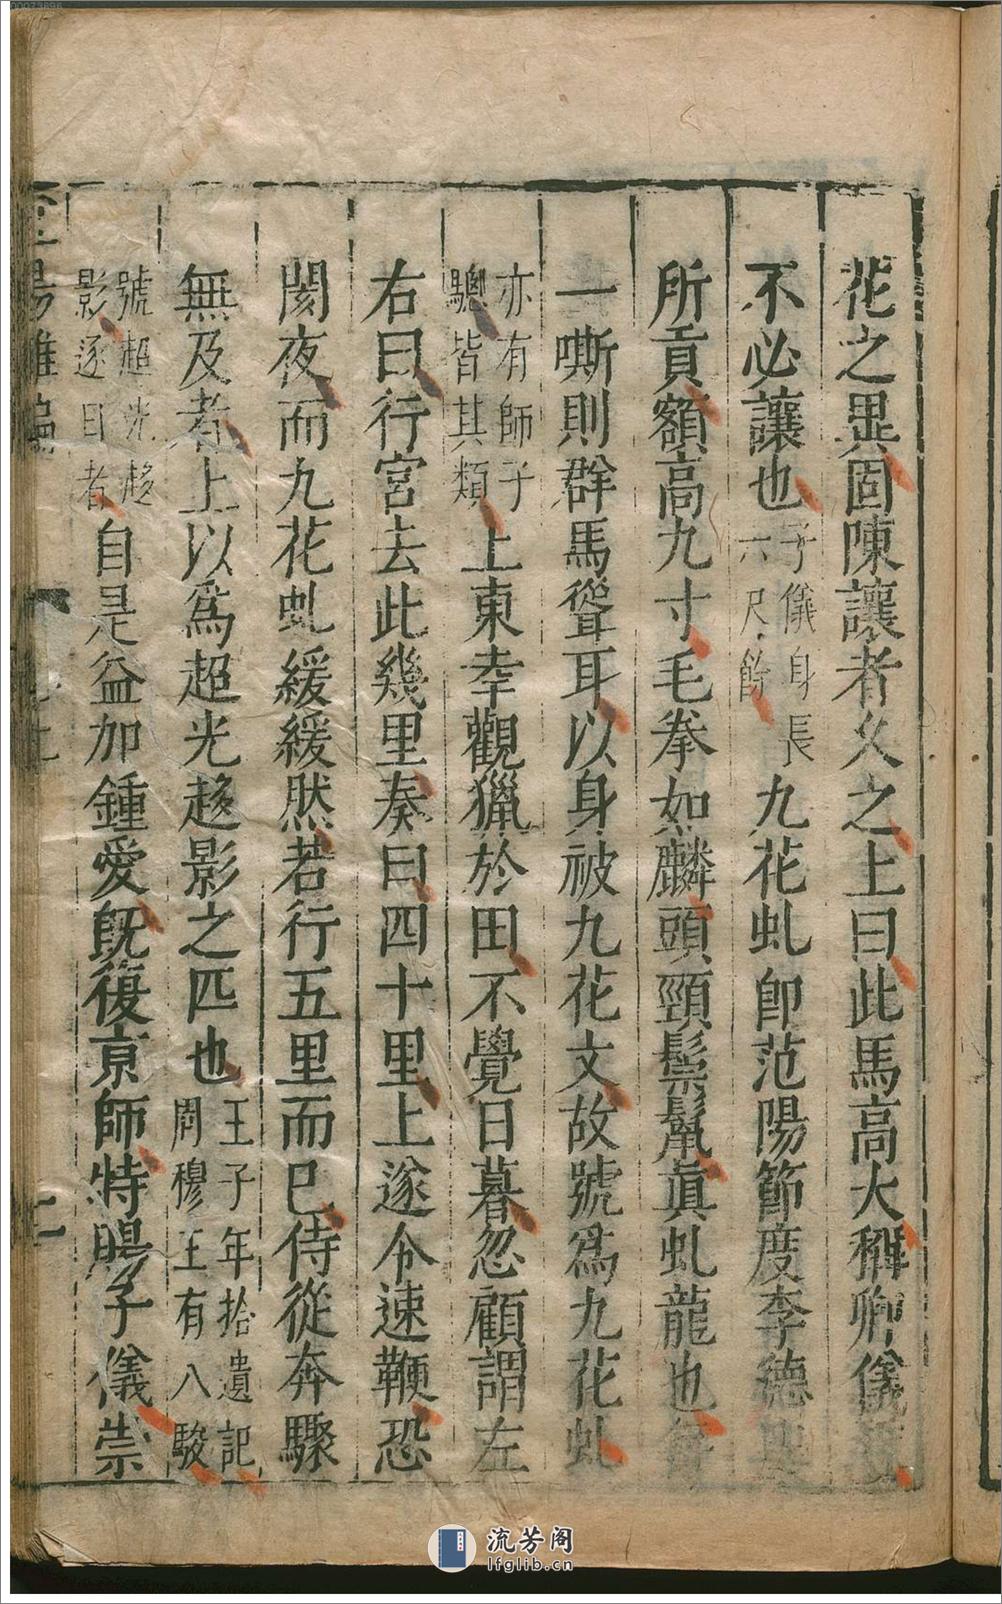 花之異固陳讓者久之上曰此馬高大稱卿儀
不必讓也子儀身長六尺餘九花虬即范陽節度李德
所貢額高九寸毛拳如麟頭頸鬃鬣眞虬龍也每
一嘶則群馬聳耳以身被九花文故號爲九花虬
亦有師子驄皆其類上東幸觀獵於田不覺日暮忽顧謂左
右曰行宮去此幾里奏曰四十里上遂令速鞭恐
閡夜而九花虬緩緩然若行五里而已侍從奔驟
無及者上以爲超光趍影之匹也王子年拾遺記周穆王有八駿
號超光趍影逐日者自是益加鍾愛旣復京師特賜子儀崇
流芳阁
lfglib.cn
00073896